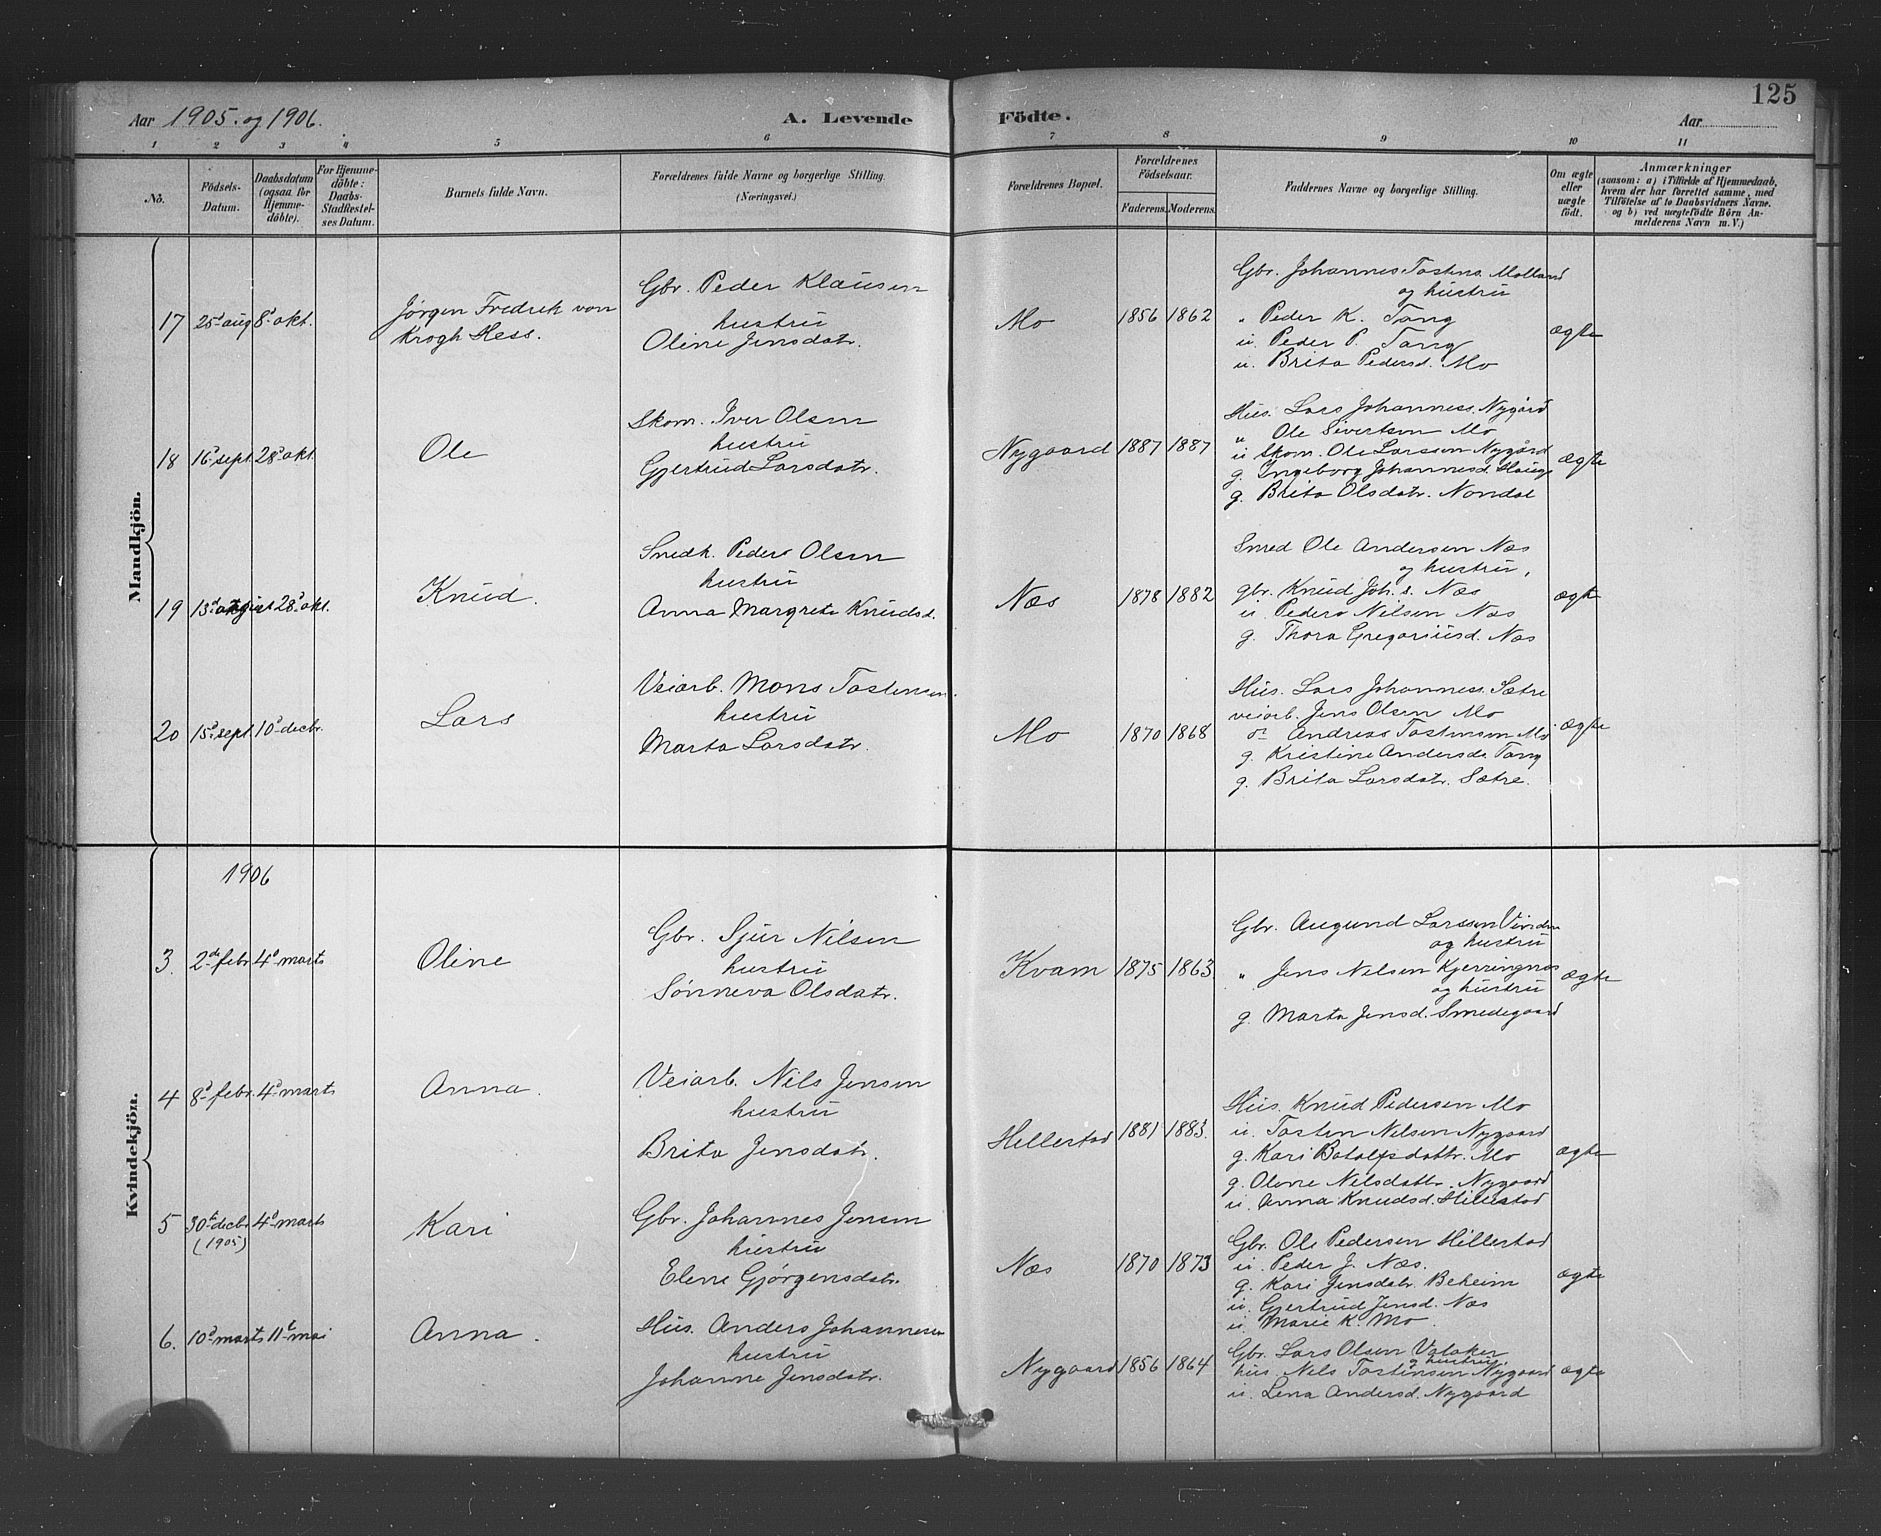 125
Aar 1905. og 1906.
A. Levende Födte.
Aar
1 2 3 4 5 6 7 8 9 10 11
No.
Födsels-Datum.
Daabsdatum (ogsaa for Hjemme-döbte).
For Hjemme-döbte: Daabs-Stadfæstel-ses Datum.
Barnets fulde Navn.
Forældrenes fulde Navne og borgerlige Stilling.
(Næringsvei.)
Forældrenes Bopæl.
Forældrenes Födselsaar.
Faderens. Moderens.
Faddernes Navne og borgerlige Stilling.
Om ægte eller uægte födt.
Anmærkninger
(saasom: a) i Tilfælde af Hjemmedaab,
hvem der har forrettet samme, med
Tilföielse af to Daabsvidners Navne.
og b) ved uægtefödte Börn An-
melderens Navn m. V.)
Mandkjön.
17 25d aug 8d okt.
Jørgen Fredrik von
Krogh Hess.
Gbr. Peder Klausen
hustru
Oline Jensdatr.
Mo 1856 1862
Gbr. Johannes Tostens. Molland
og hustru
" Peder K. Tang
u. Peder P. Tang
u. Brita Pedersd. Mo
ægte
18 16d sept. 28d okt.
Ole
Skom. Iver Olsen
hustru
Gjertrud Larsdatr.
Nygaard 1887 1887
Hus. Lars Johanness. Nygård
" Ole Sivertsen Mo
u. Skom. Ole Larssen Nygård
g. Ingeborg Johannesd. Haug
g. Brita Olsdatr. Nondal
ægte
19 13d august 28d okt.
Knud.
Smedh. Peder Olsen
hustru
Anna Margrete Knudsd.
Næs 1878 1882
Smed Ole Andersen Næs
og hustru,
gbr. Knud Joh. s. Næs
u. Peder Nilsen Næs
g. Thora Gregoriusd. Næs
ægte
20 15d sept. 10d decbr.
Lars
Veiarb. Mons Tostensen
hustru
Marta Larsdatr.
Mo 1870 1868
Hus. Lars Johanness. Sætre
veiarb. Jens Olsen Mo
Andreas Tostensen Mo
g. Kristine Andersdr Tang
g. Brita Larsdatr. Sætre.
ægte
Kvindekjön.
1906
3. 2de febr. 4d marts
Oline
Gbr. Sjur Nilsen
hustru
Sønneva Olsdatr.
Kvam 1875 1863
Gbr. Augund Larssen
og hustru
" Jens Nilsen Kjerringnæs
og hustru
g. Marta Jensd. Smedegaard
ægte
4 8d febr. 4d marts
Anna.
Veiarb. Nils Jensen
hustru
Brita Jensdatr.
Hillestad 1881 1883.
Hus. Knud Pedersen Mo
u. Tosten Nilsen Nygaard
g. Kari Botolfsdattr. Mo
g. Oline Nilsdattr. Nygaard
u. Anna Knudsd. Hillestad
ægte
5 30te decbr. 4d marts
(1905)
Kari
Gbr. Johannes Jensen
hustru
Elene Gjørgensdatr.
Næs 1870 1873
Gbr. Ole Pedersen Hillestad
u. Peder J. Næs.
g. Kari Jensdatr. Beheim
u. Gjertrud Jensd. Næs
u. Marie K. Mo.
ægte
6. 10d marts 11te mai
Anna.
Hus. Anders Johannesen
hustru
Johanne Jensdatr.
Nygaard 1856 1864
Gbr. Lars Olsen Vataker
og hustru.
hus. Nils Tostensen Nygaard
u. Lena Andersd. Nygaard
ægte